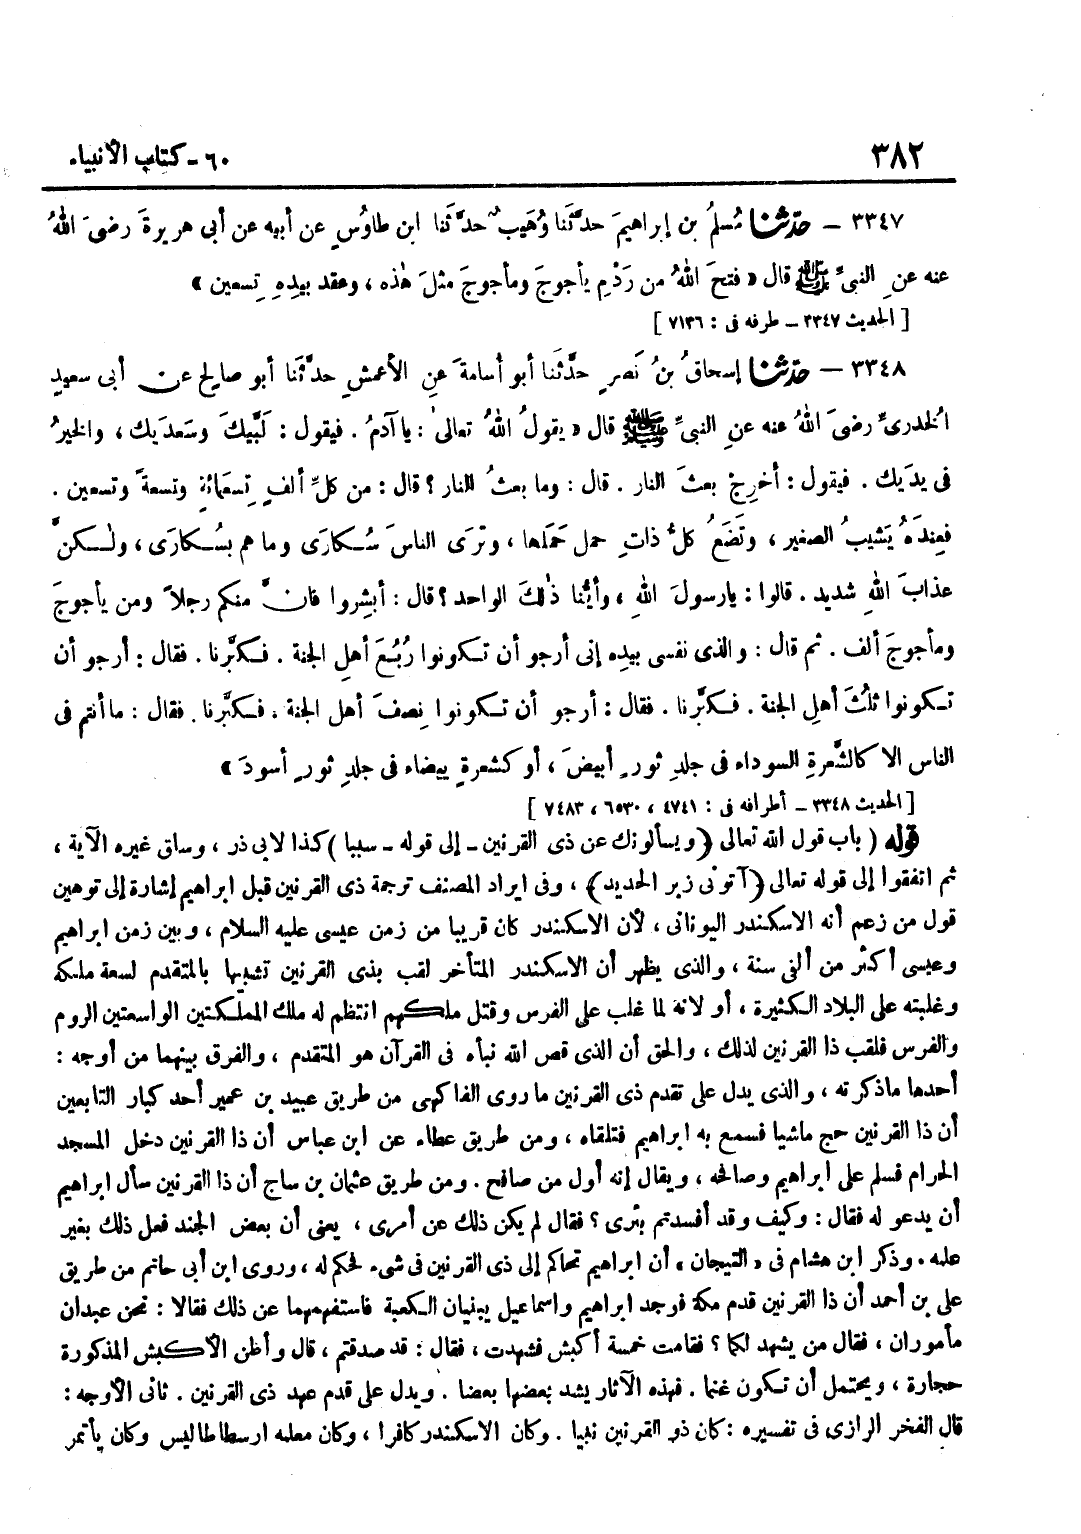 ٣٨٢
٦٠ - كتاب الأنبياء
٣٣٤٧ – حدّثنا مُسلمُ بن إبراهيمَ حدَّثَنا وُهَيبٌ حدَّثَنا ابن طاوُسٍ عن أبيه عن أبى هريرةَ رضىَ اللهُ
عنه عنِ النبىِّ ﷺ قال « فتحَ اللهُ من رَدْمِ يأجوجَ ومأجوجَ مثلَ هٰذه ، وعقد بيدِهِ تِسعين »
[ الحديث ٣٣٤٧ – طرفه فى : ٧١٣٦ ]
٣٣٤٨ – حدّثنا إسحاقُ بنُ نَصرٍ حدَّثَنا أبو أُسامةَ عنِ الأعمشِ حدَّثَنا أبو صالحٍ عن أبى سعيدٍ
الخدرىِّ رضىَ اللهُ عنه عنِ النبىِّ ﷺ قال « يقولُ اللهُ تعالىٰ : يا آدمُ . فيقول : لَبَّيكَ وسَعدَيك ، والخيرُ
فى يدَيك . فيقول : أخرِجْ بعثَ النار . قال : وما بعثُ النار ؟ قال : من كلِّ ألفٍ تِسعَمائةٍ وتسعةً وتسعين .
فعِندَهُ يَشيبُ الصغير ، وتَضَعُ كلُّ ذاتِ حملٍ حَملَها ، وتَرَى الناسَ سُكارَى وما هم بسُكارَى ، ولٰكنَّ
عذابَ اللهِ شديد . قالوا : يارسولَ اللهِ ، وأيُّنا ذٰلكَ الواحد ؟ قال : أبشِروا فانَّ منكم رجلاً ومن يأجوجَ
ومأجوجَ ألف . ثم قال : والذى نفسى بيدِه إنى أرجو أن تكونوا رُبُعَ أهلِ الجنة . فكبَّرنا . فقال : أرجو أن
تكونوا ثلُثَ أهلِ الجنة . فكبَّرنا . فقال : أرجو أن تكونوا نِصفَ أهل الجنة . فكبَّرنا . فقال : ما أنتم فى
الناس الا كالشَّعرةِ السوداء فى جلدِ ثورٍ أبيضَ ، أو كشعرةٍ بيضاء فى جلدِ ثورٍ أسودَ »
[ الحديث ٣٣٤٨ – أطرافه فى : ٤٧٤١ ، ٦٥٣٠ ، ٧٤٨٣ ]
قوله ( باب قول الله تعالى ﴿ ويسألونك عن ذى القرنين – إلى قوله – سببا ﴾ كذا لابى ذر ، وساق غيره الآية ،
ثم اتفقوا إلى قوله تعالى ﴿ آتونى زبر الحديد ﴾ ، وفى ايراد المصنف ترجمة ذى القرنين قبل ابراهيم إشارة إلى توهين
قول من زعم أنه الاسكندر اليونانى ، لأن الاسكندر كان قريبا من زمن عيسى عليه السلام ، وبين زمن ابراهيم
وعيسى أكثر من ألفى سنة ، والذى يظهر أن الاسكندر المتأخر لقب بذى القرنين تشبيها بالمتقدم لسعة ملكه
وغلبته على البلاد الكثيرة ، أو لانه لما غلب على الفرس وقتل ملكهم انتظم له ملك المملكتين الواسعتين الروم
والفرس فلقب ذا القرنين لذلك ، والحق أن الذى قص الله نبأه فى القرآن هو المتقدم ، والفرق بينهما من أوجه :
أحدها ماذكرته ، والذى يدل على تقدم ذى القرنين ما روى الفاكهى من طريق عبيد بن عمير أحد كبار التابعين
أن ذا القرنين حج ماشيا فسمع به ابراهيم فتلقاه ، ومن طريق عطاء عن ابن عباس أن ذا القرنين دخل المسجد
الحرام فسلم على ابراهيم وصافحه ، ويقال إنه أول من صافح . ومن طريق عثمان بن ساج أن ذا القرنين سأل ابراهيم
أن يدعو له فقال : وكيف وقد أفسدتم بئرى ؟ فقال لم يكن ذلك عن أمرى ، يعنى أن بعض الجند فعل ذلك بغير
علمه . وذكر ابن هشام فى « التيجان » أن ابراهيم تحاكم إلى ذى القرنين فى شىء فحكم له ، وروى ابن أبى حاتم من طريق
على بن أحمد أن ذا القرنين قدم مكة فوجد ابراهيم واسماعيل يبنيان الكعبة فاستفهمهما عن ذلك فقالا : نحن عبدان
مأموران ، فقال من يشهد لكما ؟ فقامت خمسة أكبش فشهدت ، فقال : قد صدقتم ، قال وأظن الأكبش المذكورة
حجارة ، ويحتمل أن تكون غنما . فهذه الآثار يشد بعضها بعضا . ويدل على قدم عهد ذى القرنين . ثانى الأوجه :
قال الفخر الرازى فى تفسيره : كان ذو القرنين نبيا . وكان الاسكندر كافرا ، وكان معلمه ارسطاطاليس وكان يأتمر